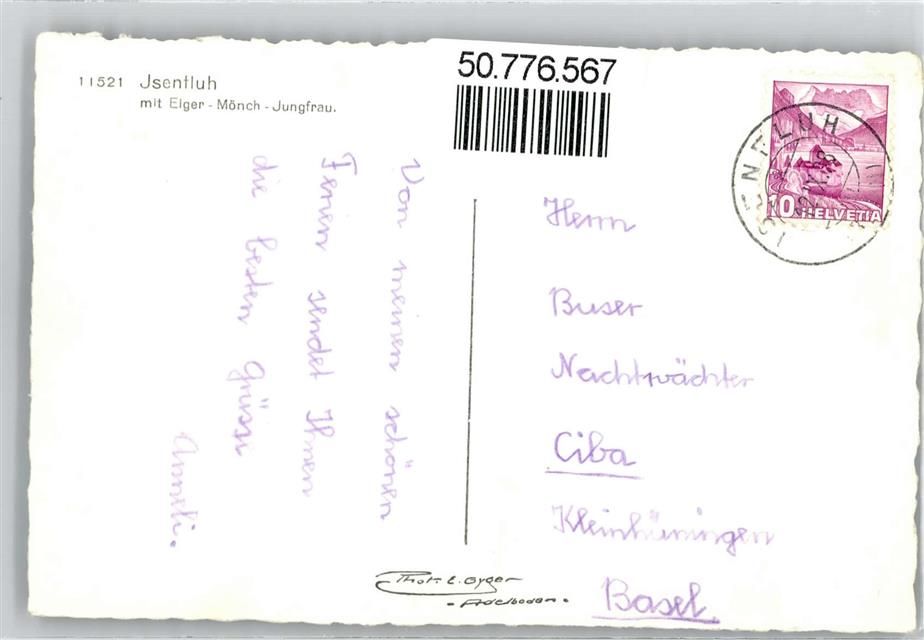 11521 Jsentluh
mit Eiger - Mönch - Jungfrau.
50.776.567
ISENFLUH
10 HELVETIA
Von meinen schönen
Ferien sendet Ihnen
die besten Grüsse
Anneli.
Herrn
Buser
Nachtwächter
Ciba
Kleinhüningen
Basel.
Phot. E. Gyger
- Adelboden -